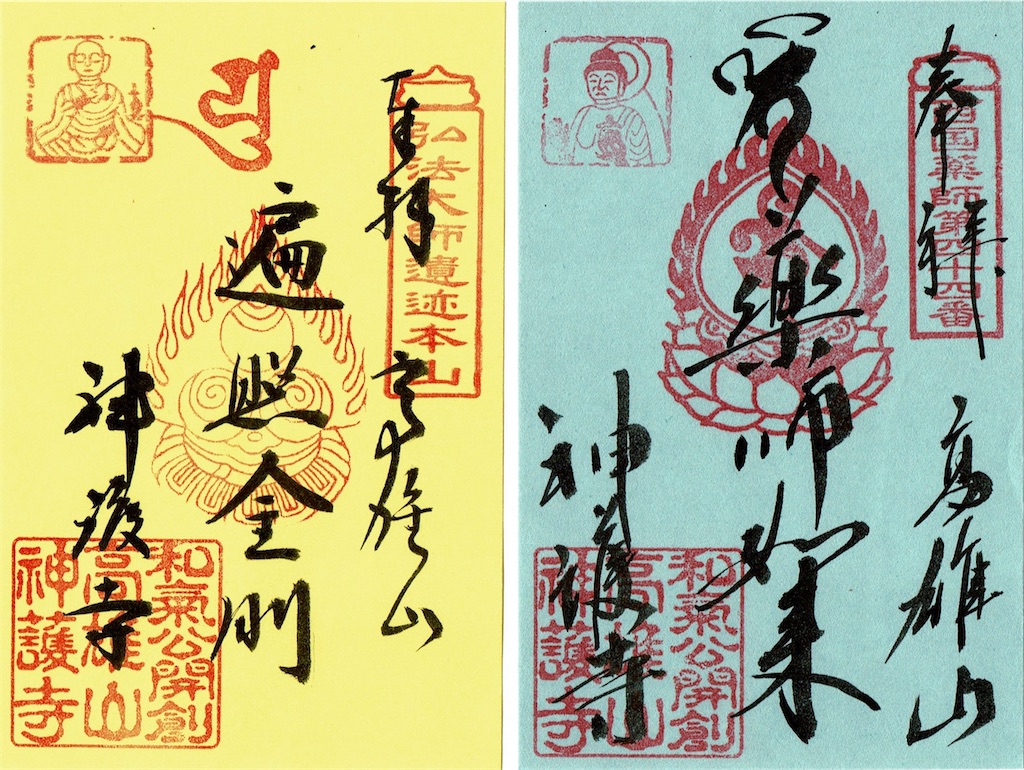 弘法大師遺迹本山
奉拝 高雄山
遍照金剛
神護寺
和氣公開創
高雄山
神護寺
西国薬師第四十四番
奉拝 高雄山
藥師如来
神護寺
和氣公開創
高雄山
神護寺